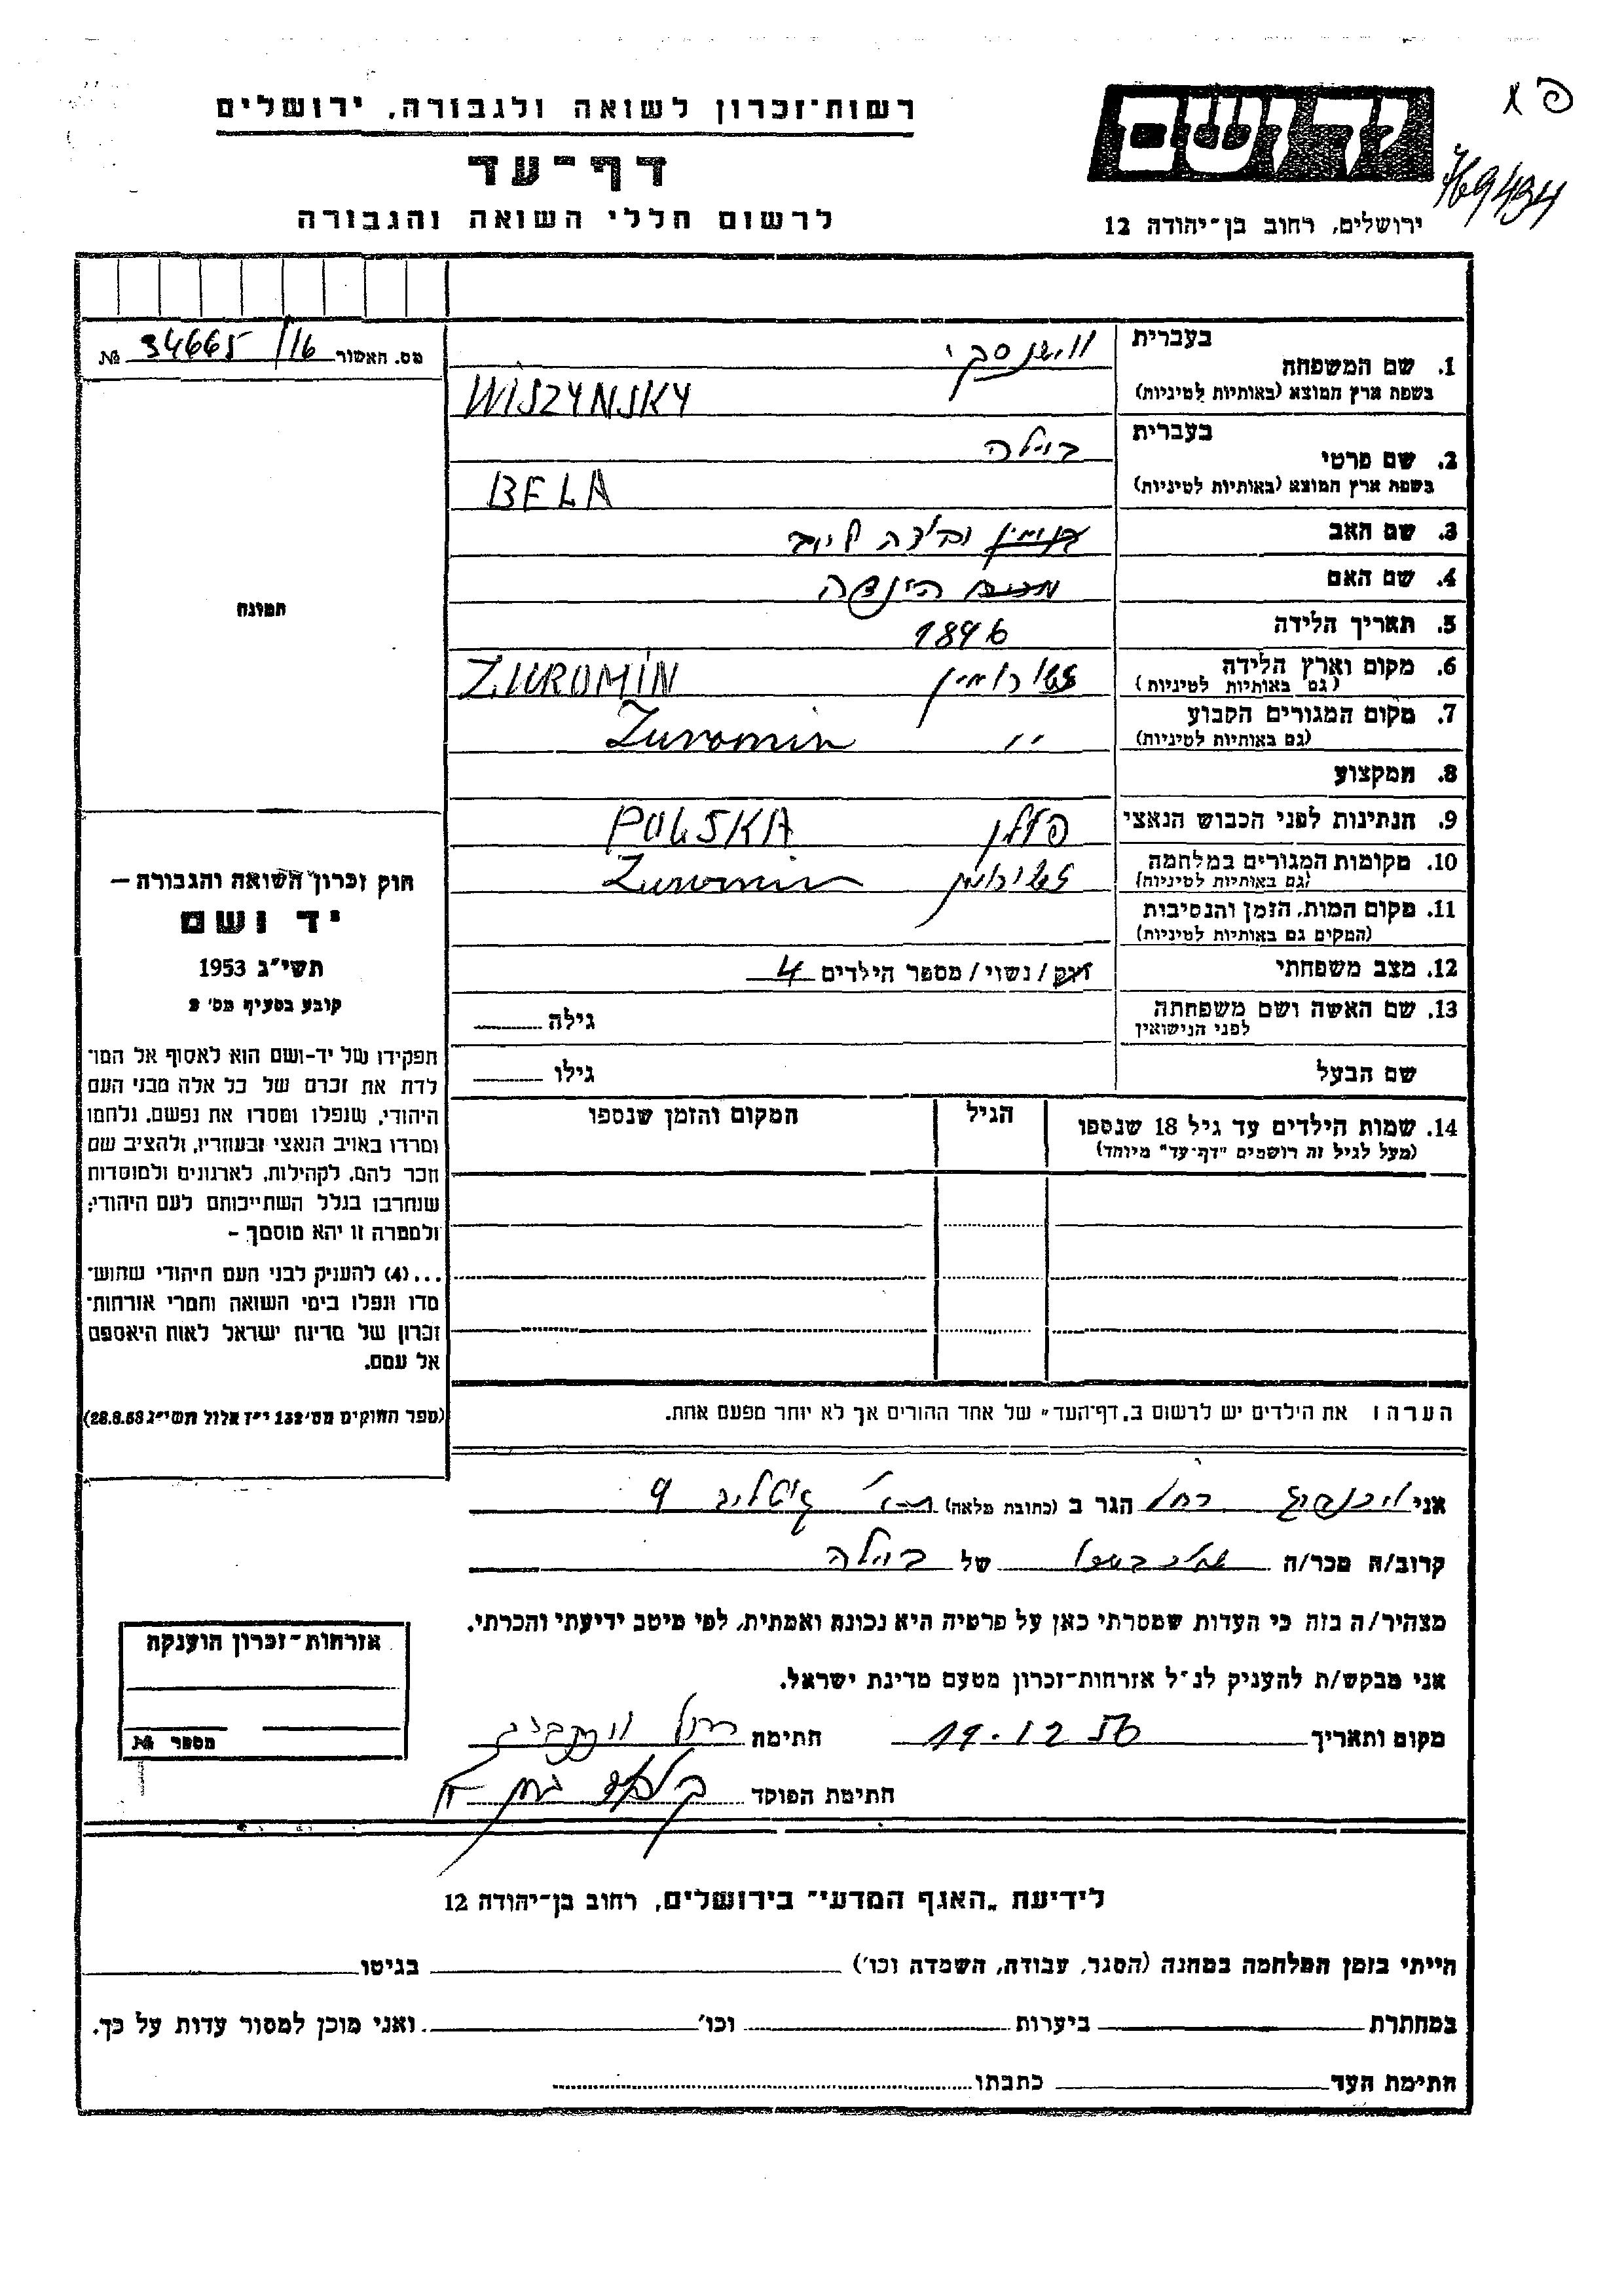 רשות־זכרון לשואה ולגבורה, ירושלים
דף־עד
לרשום חללי השואה והגבורה
יד ושם
ירושלים, רחוב בן־יהודה 12
769434
מס. האשור 34665/16 №
תמונה
בעברית
1. שם המשפחה וישנסקי
בשפת ארץ המוצא (באותיות לטיניות) WISZYNSKY
בעברית
2. שם פרטי ביילה
בשפת ארץ המוצא (באותיות לטיניות) BELA
3. שם האב
4. שם האם
5. תאריך הלידה 1896
6. מקום וארץ הלידה ZUROMIN
(גם באותיות לטיניות)
7. מקום המגורים הקבוע Zuromin
(גם באותיות לטיניות)
8. המקצוע
9. הנתינות לפני הכבוש הנאצי פולין POLSKA
10. מקומות המגורים במלחמה Zuromin
(גם באותיות לטיניות)
11. מקום המות, הזמן והנסיבות
(המקום גם באותיות לטיניות)
12. מצב משפחתי רוק / נשוי / מספר הילדים 4
13. שם האשה ושם משפחתה גילה
לפני הנישואין
שם הבעל גילו
14. שמות הילדים עד גיל 18 שנספו הגיל המקום והזמן שנספו
(מעל לגיל זה רושמים "דף־עד" מיוחד)
הערה: את הילדים יש לרשום ב„דף־העד" של אחד ההורים אך לא יותר מפעם אחת.
חוק זכרון השואה והגבורה —
יד ושם
תשי"ג 1953
קובע בסעיף מס' 2
תפקידו של יד-ושם הוא לאסוף אל המו־
לדת את זכרם של כל אלה מבני העם
היהודי, שנפלו ומסרו את נפשם, נלחמו
ומרדו באויב הנאצי ובעוזריו, ולהציב שם
וזכר להם, לקהילות, לארגונים ולמוסדות
שנחרבו בגלל השתייכותם לעם היהודי;
ולמטרה זו יהא מוסמך –
...(4) להעניק לבני העם היהודי שהוש־
מדו ונפלו בימי השואה והמרי אזרחות־
זכרון של מדינת ישראל לאות היאספם
אל עמם.
(ספר החוקים מס' 132 י"ז אלול תשי"ג 28.8.53)
אני רחל הגר ב (כתובת מלאה) 9
קרוב/ה מכר/ה של ביילה
מצהיר/ה בזה כי העדות שמסרתי כאן על פרטיה היא נכונה ואמתית, לפי מיטב ידיעתי והכרתי.
אני מבקש/ת להעניק לנ"ל אזרחות-זכרון מטעם מדינת ישראל.
מקום ותאריך 19.12.56 חתימה
חתימת הפוקד
אזרחות־זכרון הוענקה
מספר №
לידיעת „האגף המדעי" בירושלים, רחוב בן־יהודה 12
הייתי בזמן המלחמה במחנה (הסגר, עבודה, השמדה וכו') בגיטו
במחתרת ביערות וכו' ואני מוכן למסור עדות על כך.
חתימת העד כתבתו